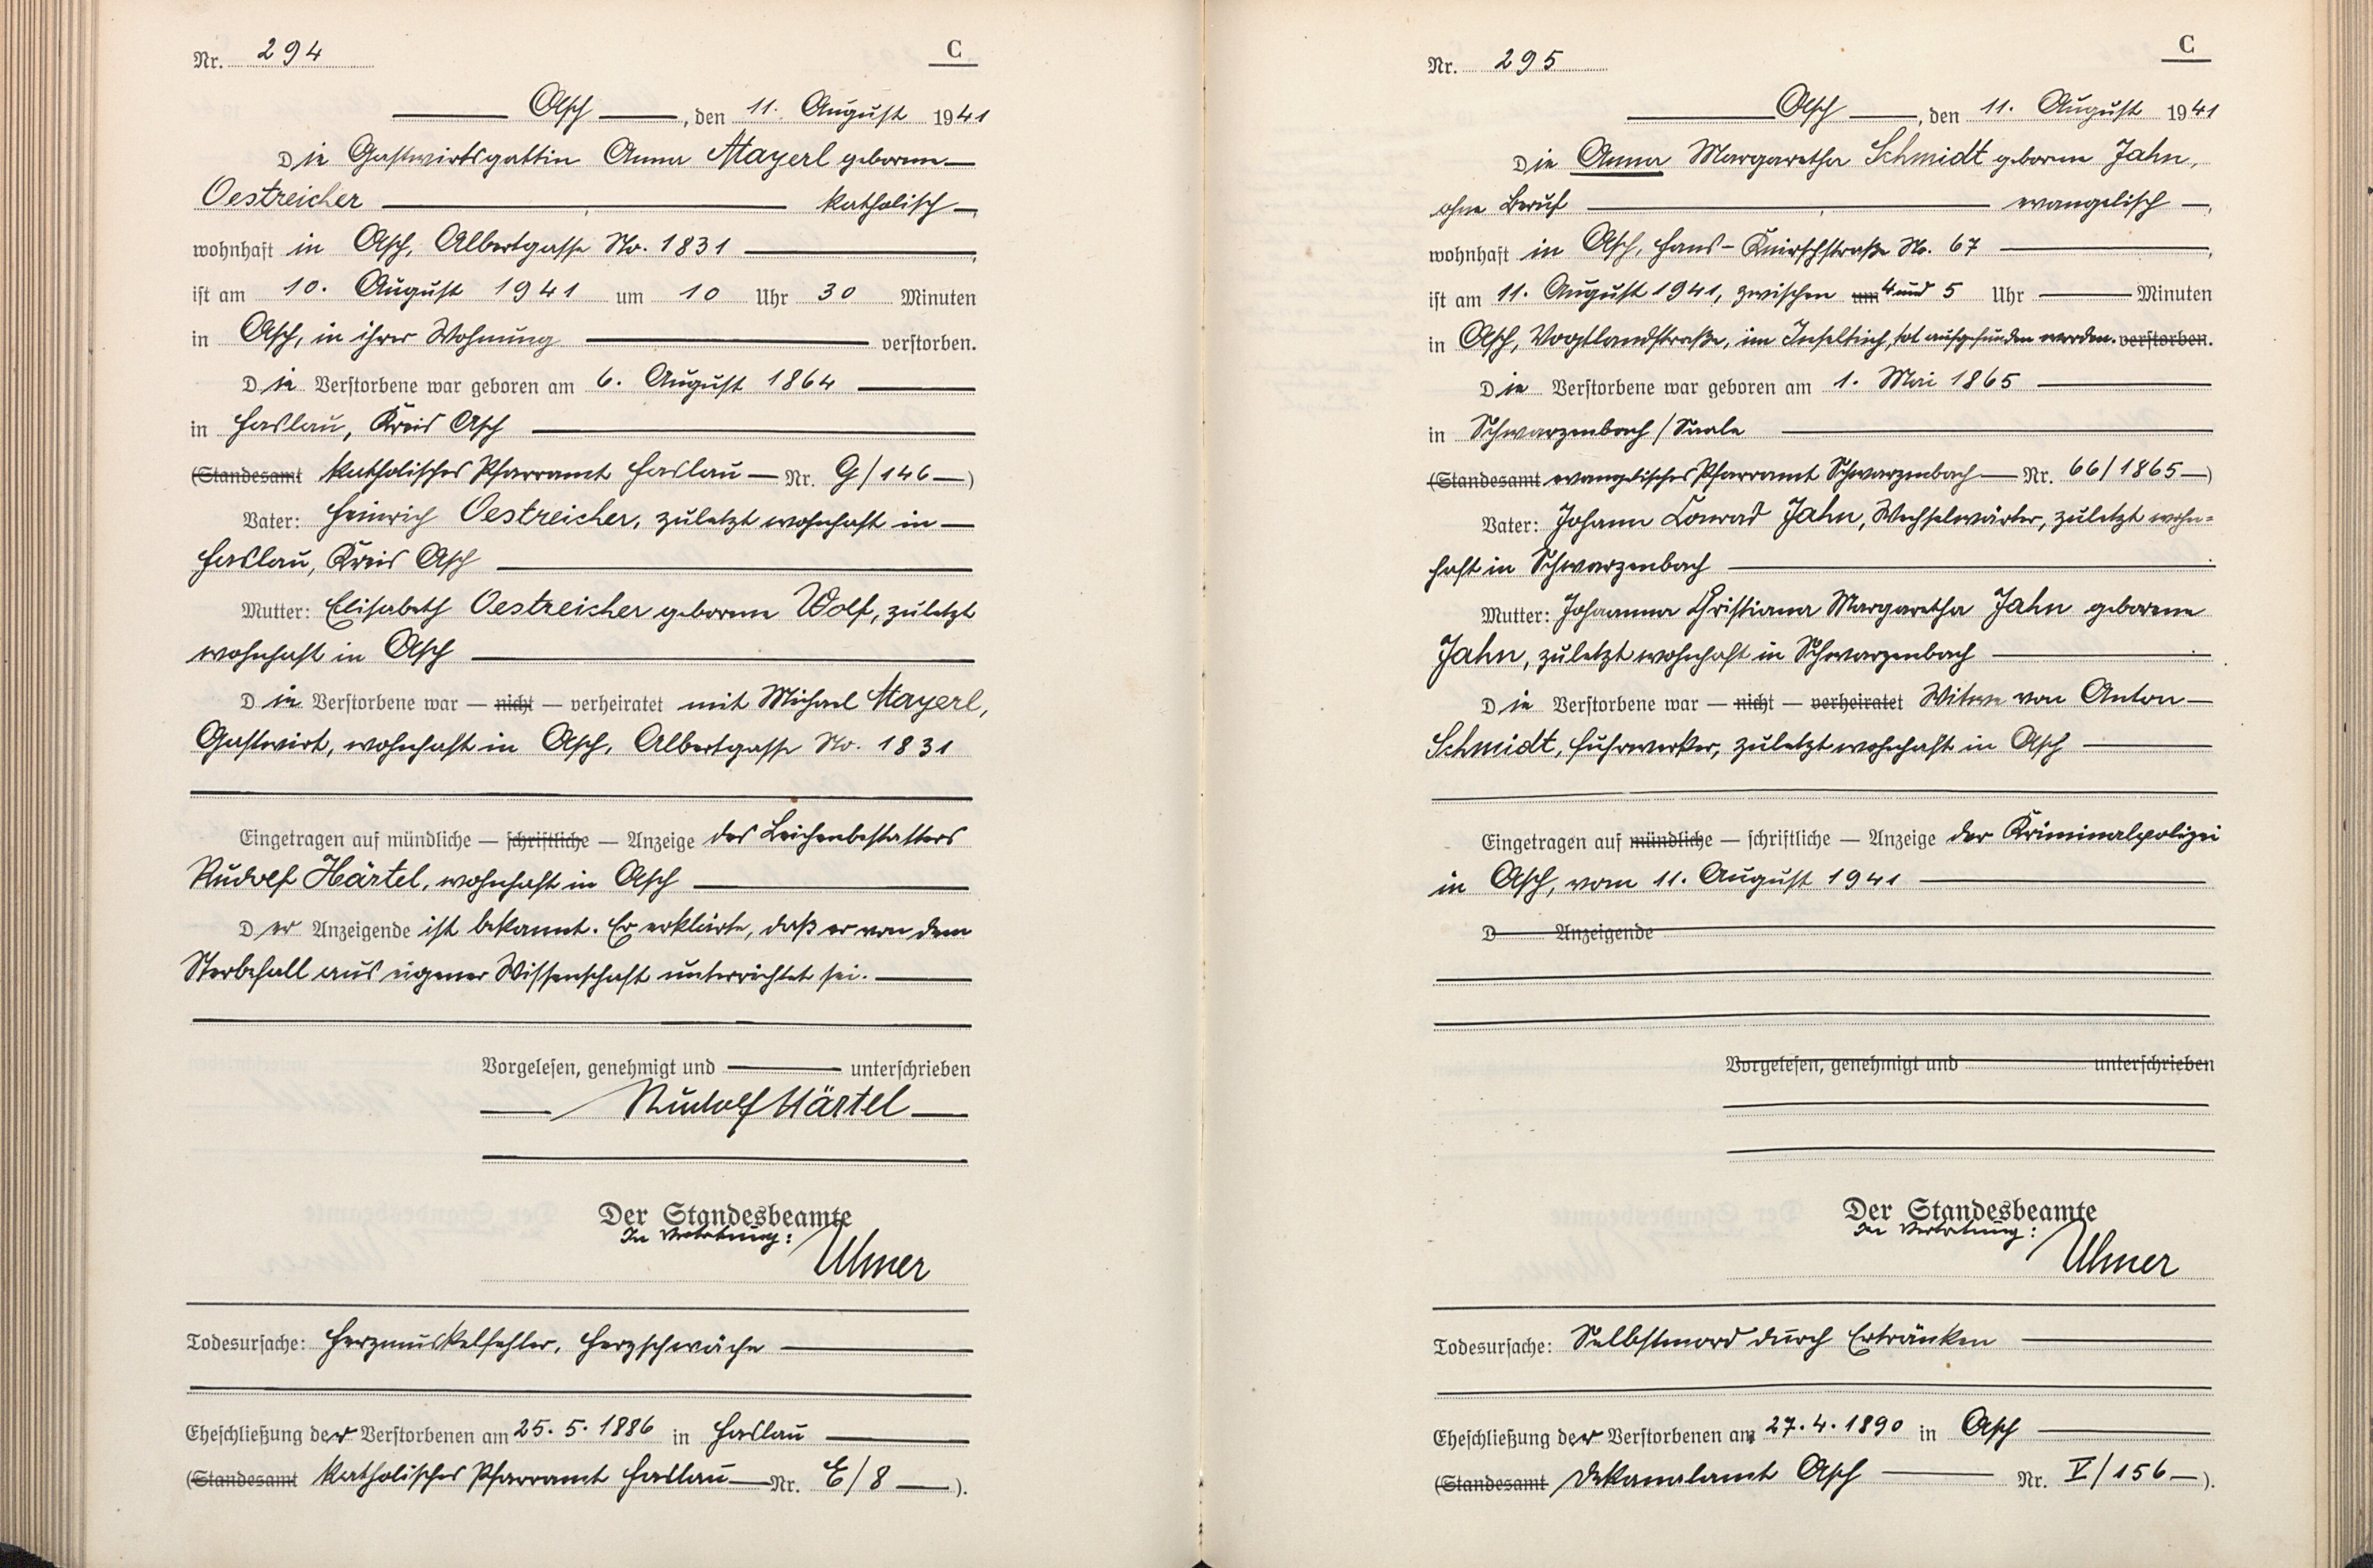 Nr. 294
C
Asch, den 11. August 1941
Die Gastwirtsgattin Anna Mayerl geborene
Oestreicher katholisch,
wohnhaft in Asch, Albertgasse No. 1831,
ist am 10. August 1941 um 10 Uhr 30 Minuten
in Asch, in ihrer Wohnung verstorben.
Die Verstorbene war geboren am 6. August 1864
in Haslau, Kreis Asch
(Standesamt katholisches Pfarramt Haslau Nr. G/146)
Vater: Heinrich Oestreicher, zuletzt wohnhaft in
Haslau, Kreis Asch
Mutter: Elisabeth Oestreicher geborene Wolf, zuletzt
wohnhaft in Asch
Die Verstorbene war — nicht — verheiratet mit Michael Mayerl,
Gastwirt, wohnhaft in Asch, Albertgasse No. 1831
Eingetragen auf mündliche — schriftliche — Anzeige des Leichenbestatters
Rudolf Härtel, wohnhaft in Asch
Der Anzeigende ist bekannt. Er erklärte, daß er von dem
Sterbefall aus eigener Wissenschaft unterrichtet sei.
Vorgelesen, genehmigt und unterschrieben
Rudolf Härtel
Der Standesbeamte
In Vertretung: Ulmer
Todesursache: Herzmuskelfehler, Herzschwäche
Eheschließung der Verstorbenen am 25. 5. 1886 in Haslau
(Standesamt katholisches Pfarramt Haslau Nr. E/8).
Nr. 295
C
Asch, den 11. August 1941
Die Anna Margaretha Schmidt geborene Jahn,
ohne Beruf evangelisch,
wohnhaft in Asch, Hans-Knirschstraße No. 67,
ist am 11. August 1941, zwischen um 4 und 5 Uhr Minuten
in Asch, Vogtlandstraße, im Inselteich, tot aufgefunden worden. verstorben.
Die Verstorbene war geboren am 1. Mai 1865
in Schwarzenbach / Saale
(Standesamt evangelisches Pfarramt Schwarzenbach Nr. 66/1865)
Vater: Johann Conrad Jahn, Wechselwärter, zuletzt wohn=
haft in Schwarzenbach
Mutter: Johanna Christiana Margaretha Jahn geborene
Jahn, zuletzt wohnhaft in Schwarzenbach
Die Verstorbene war — nicht — verheiratet Witwe von Anton
Schmidt, Fuhrwerker, zuletzt wohnhaft in Asch
Eingetragen auf mündliche — schriftliche — Anzeige der Kriminalpolizei
in Asch, vom 11. August 1941
D Anzeigende
Vorgelesen, genehmigt und unterschrieben
Der Standesbeamte
In Vertretung: Ulmer
Todesursache: Selbstmord durch Ertränken
Eheschließung der Verstorbenen am 27. 4. 1890 in Asch
(Standesamt Dekanalamt Asch Nr. V/156).